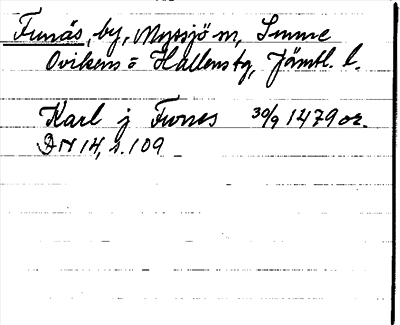 Funäs, by, Myssjö m, Sunne
Ovikens o Hallens tg, Jämtl. l.
Karl j Funes 30/9 1479 or.
DN 14, s. 109